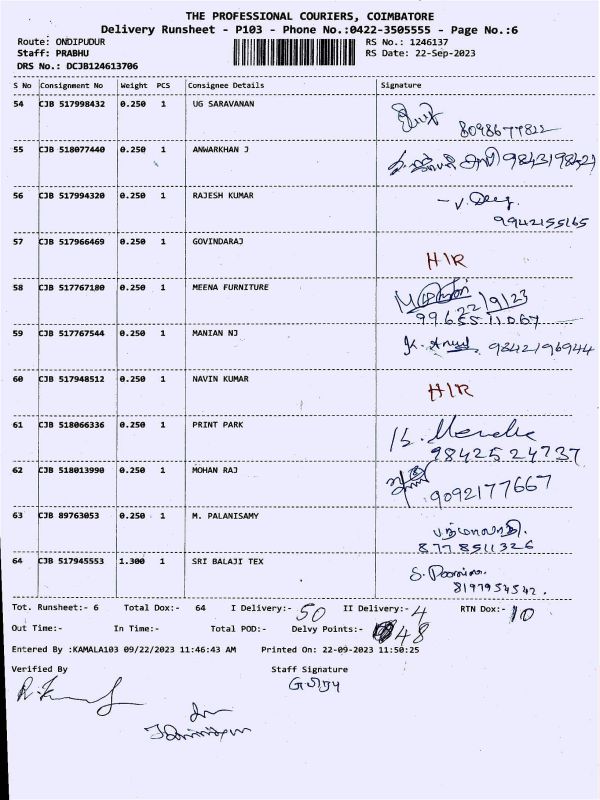 THE PROFESSIONAL COURIERS, COIMBATORE
Delivery Runsheet - P103 - Phone No.:0422-3505555 - Page No.:6
Route: ONDIPUDUR RS No.: 1246137
Staff: PRABHU RS Date: 22-Sep-2023
DRS No.: DCJB124613706
S No Consignment No Weight PCS Consignee Details Signature
54 CJB 517998432 0.250 1 UG SARAVANAN
8098677822
55 CJB 518077440 0.250 1 ANWARKHAN J 9843198421
56 CJB 517994320 0.250 1 RAJESH KUMAR
9942155165
57 CJB 517966469 0.250 1 GOVINDARAJ
H/R
58 CJB 517767180 0.250 1 MEENA FURNITURE
22/9/23
59 CJB 517767544 0.250 1 MANIAN NJ
9842196944
60 CJB 517948512 0.250 1 NAVIN KUMAR
H/R
61 CJB 518066336 0.250 1 PRINT PARK
98425 24737
62 CJB 518013990 0.250 1 MOHAN RAJ
9092177667
63 CJB 89763053 0.250 1 M. PALANISAMY
8778511326
64 CJB 517945553 1.300 1 SRI BALAJI TEX
8197954542.
Tot. Runsheet:- 6 Total Dox:- 64 I Delivery:- 50 II Delivery:- 4 RTN Dox:- 10
Out Time:- In Time:- Total POD:- Delvy Points:- 48
Entered By :KAMALA103 09/22/2023 11:46:43 AM Printed On: 22-09-2023 11:50:25
Verified By Staff Signature